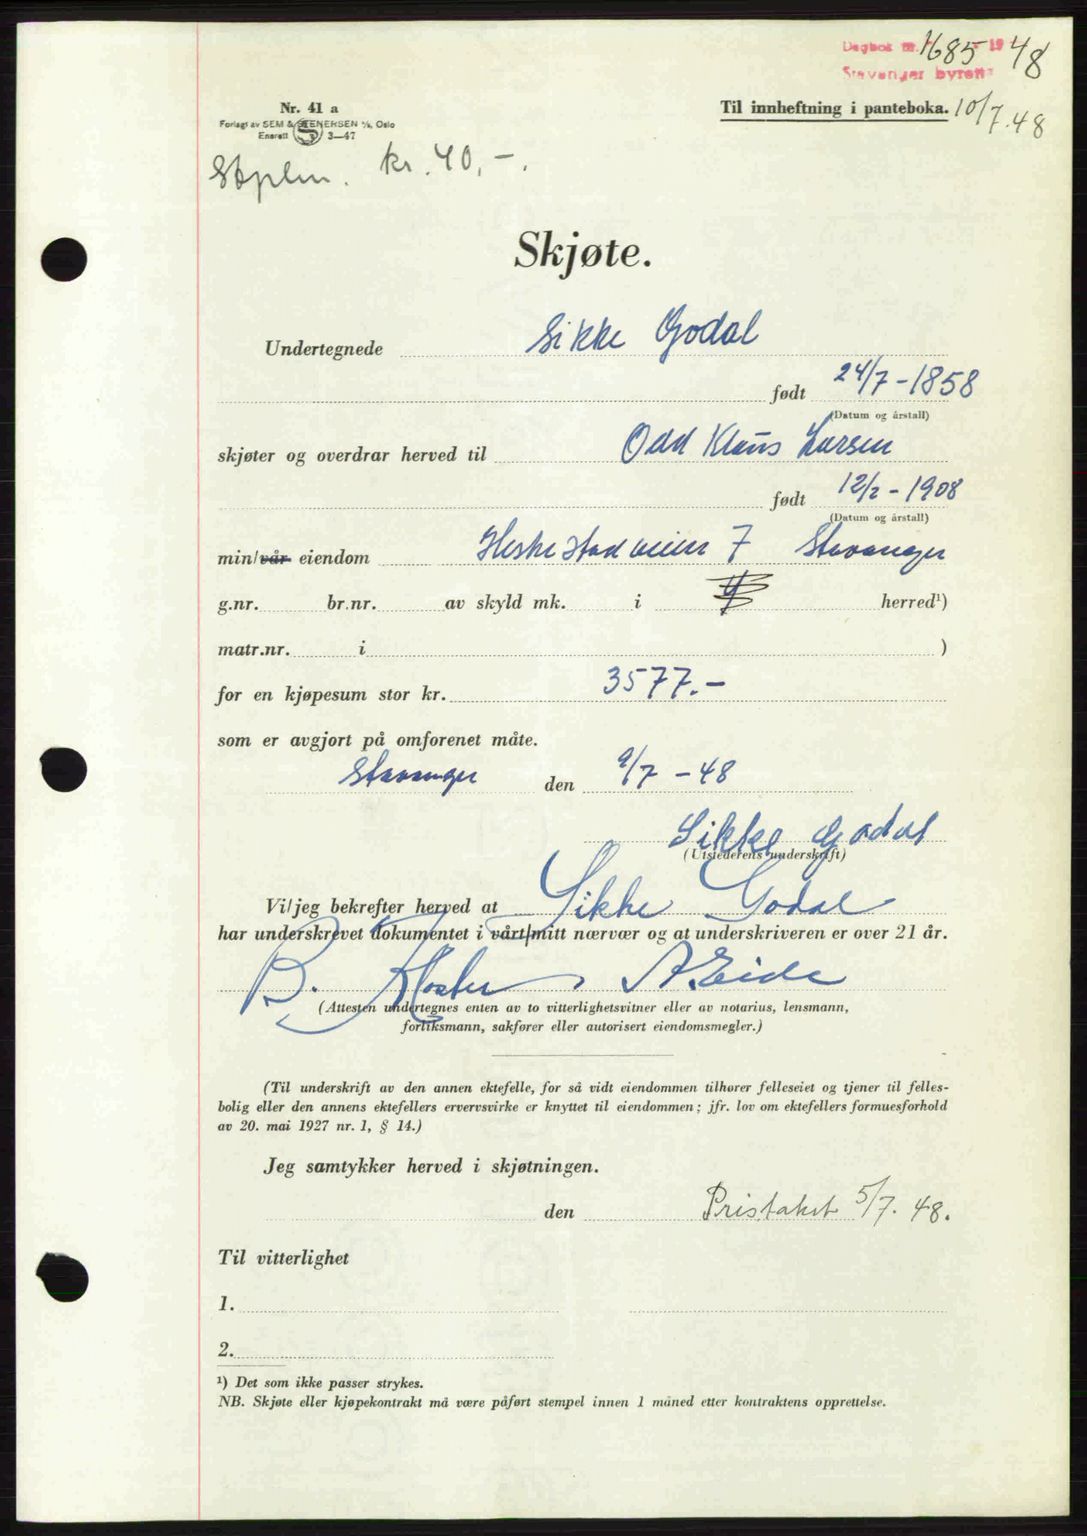 Dagbok nr. 1685 1948
Stavanger byrett
Nr. 41 a
Forlagt av SEM & STENERSEN A/S, Oslo
Enerett 3—47
Til innheftning i panteboka. 10/7.48
kr. 40,-.
Skjøte.
Undertegnede Sikke Godal
født 24/7-1858
(Datum og årstall)
skjøter og overdrar herved til Odd Klaus Larsen
født 12/2-1908
(Datum og årstall)
min/vår eiendom Heskestadveien 7 Stavanger
g.nr. br.nr. av skyld mk. i herred¹)
matr.nr. i )
for en kjøpesum stor kr. 3577.-
som er avgjort på omforenet måte.
Stavanger den 9/7-48
Sikke Godal
(Utstederens underskrift)
Vi/jeg bekrefter herved at Sikke Godal
har underskrevet dokumentet i vårt/mitt nærvær og at underskriveren er over 21 år.
B. Kloster, A. Eide
(Attesten undertegnes enten av to vitterlighetsvitner eller av notarius, lensmann,
forliksmann, sakfører eller autorisert eiendomsmegler.)
(Til underskrift av den annen ektefelle, for så vidt eiendommen tilhører felleseiet og tjener til felles-
bolig eller den annens ektefellers ervervsvirke er knyttet til eiendommen; jfr. lov om ektefellers formuesforhold
av 20. mai 1927 nr. 1, § 14.)
Jeg samtykker herved i skjøtningen.
den Pristakst 5/7.48.
Til vitterlighet
1.
2.
¹) Det som ikke passer strykes.
NB. Skjøte eller kjøpekontrakt må være påført stempel innen 1 måned etter kontraktens opprettelse.